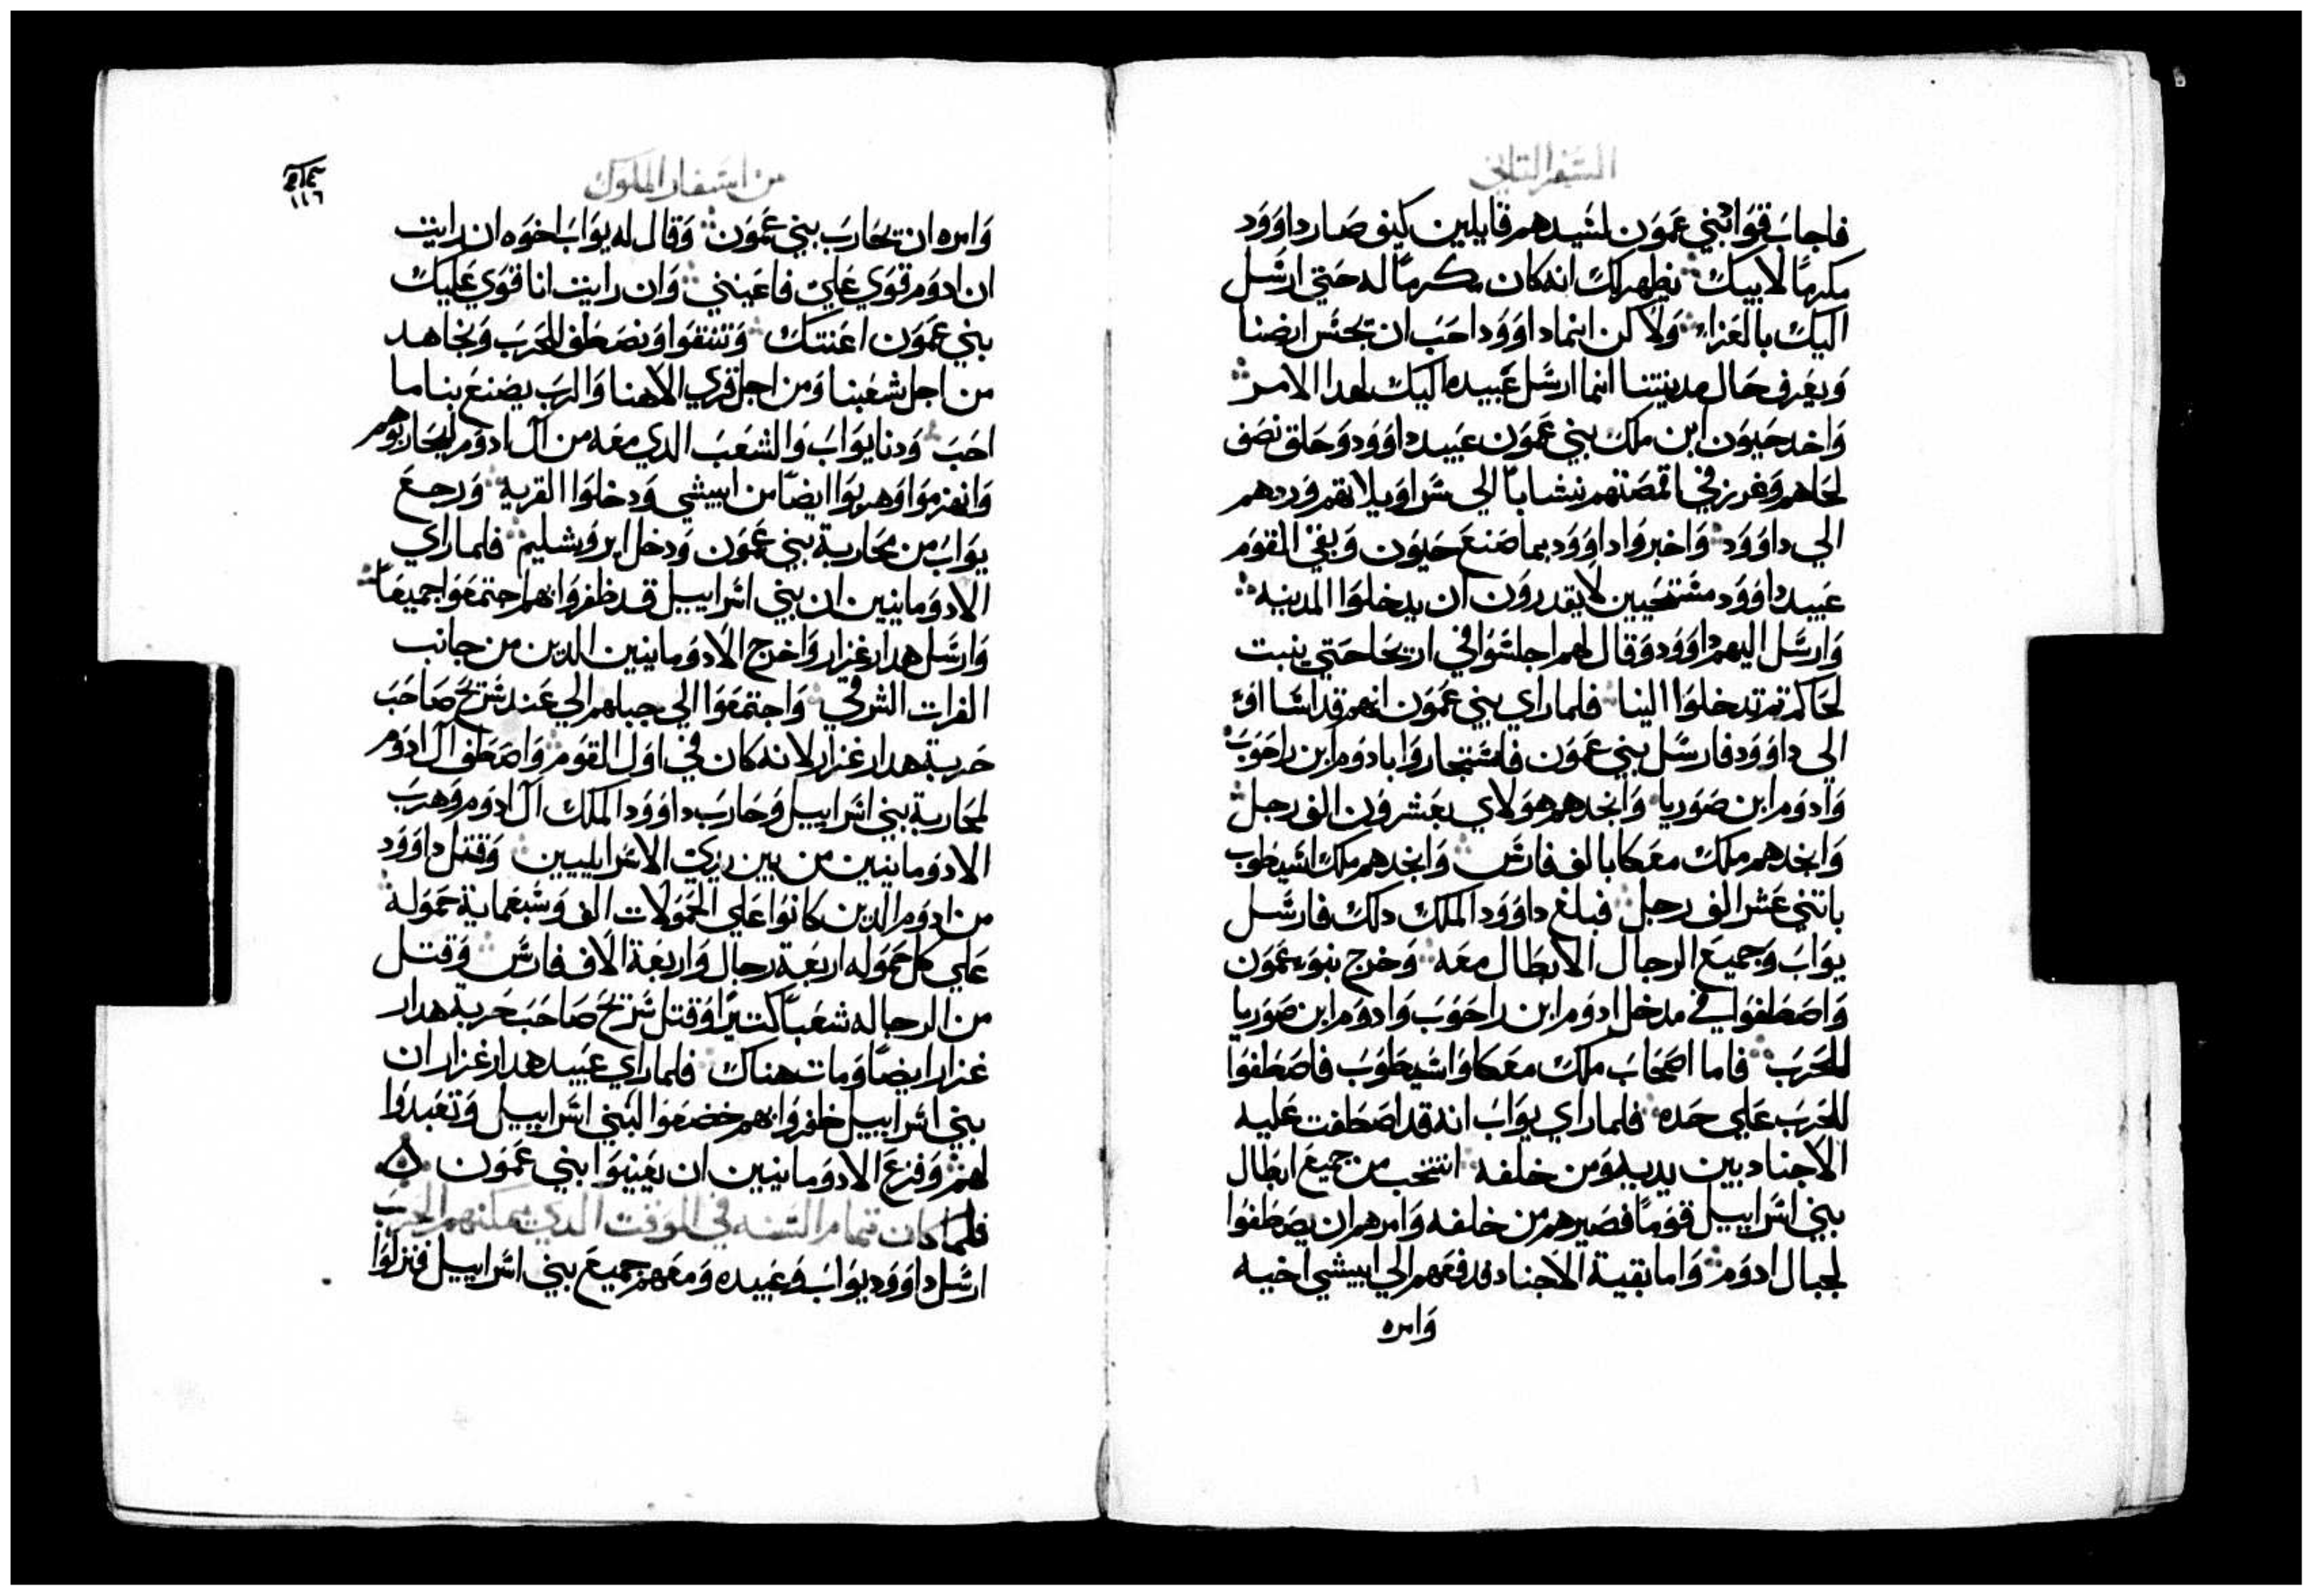 السفر التاني
فاجاب قواد بني عمون لسيدهم قايلين كيف صار داوود
مكرمًا لابيك يظهر لك انه كان مكرمًا له حتي ارسل
اليك بالعزاء ولاكن انما داوود احب ان يحتس ارضنا
ويعرف حال مدينتنا انما ارسل عبيده اليك لهدا الامر
واخد حيون ابن ملك بني عمون عبيد داوود وحلق نصف
لحاهم وغرز في اقمصتهم نشابًا الي سراويلاتهم وردهم
الي داوود واخبروا داوود بما صنع حيون وبقي القوم
عبيد داوود مستحيين لا يقدرون ان يدخلوا المدينه
وارسل اليهم داوود وقال لهم اجلسوا في اريحا حتي ينبت
لحاكم تم تدخلوا الينا فلما راي بني عمون انهم قد اساًاوا
الي داوود فارسل بني عمون فاستجاروا بادوم ابن راحوب
وادوم ابن صوريا وانجدهم هولاي بعشرون الف رجل
وانجدهم ملك معكا بالف فارس وانجدهم ملك اسيطوب
باتني عشر الف رجل فبلغ داوود الملك دلك فارسل
يواب وجميع الرجال الابطال معه وخرج بنو عمون
واصطفوا في مدخل ادوم ابن راحوب وادوم ابن صوريا
للحرب فاما اصحاب ملك معكا واسيطوب فاصطفوا
للحرب علي حده فلما راي يواب انه قد اصطفت عليه
الاجناد بين يديه ومن خلفه انتخب من جميع ابطال
بني اسراييل قومًا فصيرهم من خلفه وامرهم ان يصطفوا
لجبال ادوم واما بقية الاجناد فدفعهم الي ابيشي اخيه
وامره
من اسفار الملوك
١١٦
وامره ان يحارب بني عمون وقال له يواب اخوه ان رايت
ان ادوم قوي علي فاعينني وان رايت انا قوي عليك
بني عمون اعنتك وتتقوا ونصطف للحرب ونجاهد
من اجل شعبنا ومن اجل قري الاهنا والرب يصنع بنا ما
احب ودنا يواب والشعب الدي معه من ال ادوم ليحاربوهم
وانهزموا وهربوا ايضًا من ابيشي ودخلوا القريه ورجع
يواب من محاربة بني عمون ودخل ايروشليم فلما راي
الادومانيين ان بني اسراييل قد ظفروا بهم اجتمعوا جميعًا
وارسل هدار غزار واخرج الادومانيين الدين من جانب
الفرات الشرقي واجتمعوا الي جبالهم الي عند شريح صاحب
حربة هدار غزار لانه كان في اول القوم واصطف ال ادوم
لمحاربة بني اسراييل وحارب داوود الملك ال ادوم وهرب
الادومانيين من بين يدي الاسراييليين وقتل داوود
من ادوم الدين كانوا علي الحمولات الف وسبعماية حموله
علي كل حموله اربعة رجال واربعة الاف فارس وقتل
من الرجاله شعبًا كتيرًا وقتل شريح صاحب حربة هدار
غزار ايضًا ومات هناك فلما راي عبيد هدار غزار ان
بني اسراييل ظفروا بهم خضعوا لبني اسراييل وتعبدوا
لهم وفزع الادومانيين ان يعينوا بني عمون
فلما كان تمام السنه في الوقت الدي يمكنهم الحرب
ارسل داوود يواب وعبيده ومعهم جميع بني اسراييل فنزلوا